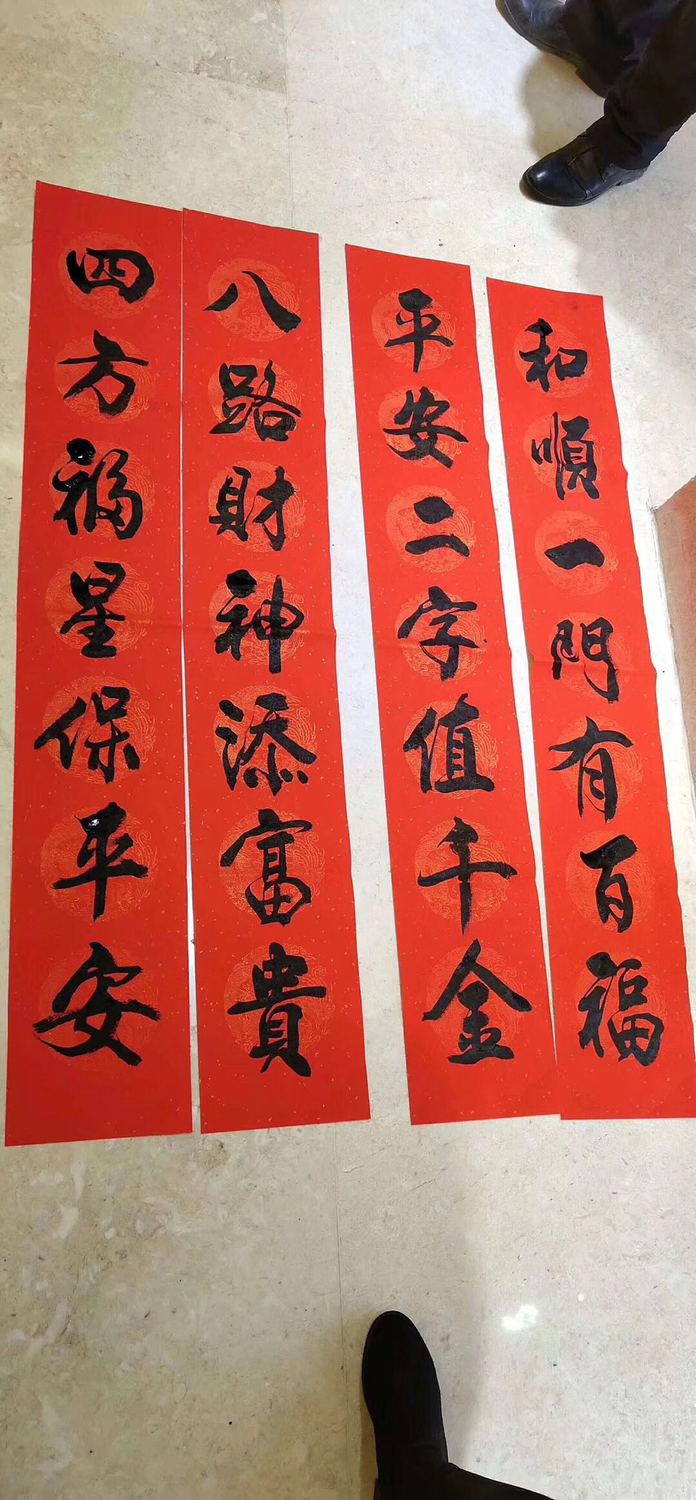 和順一門有百福
平安二字值千金
八路財神添富貴
四方福星保平安